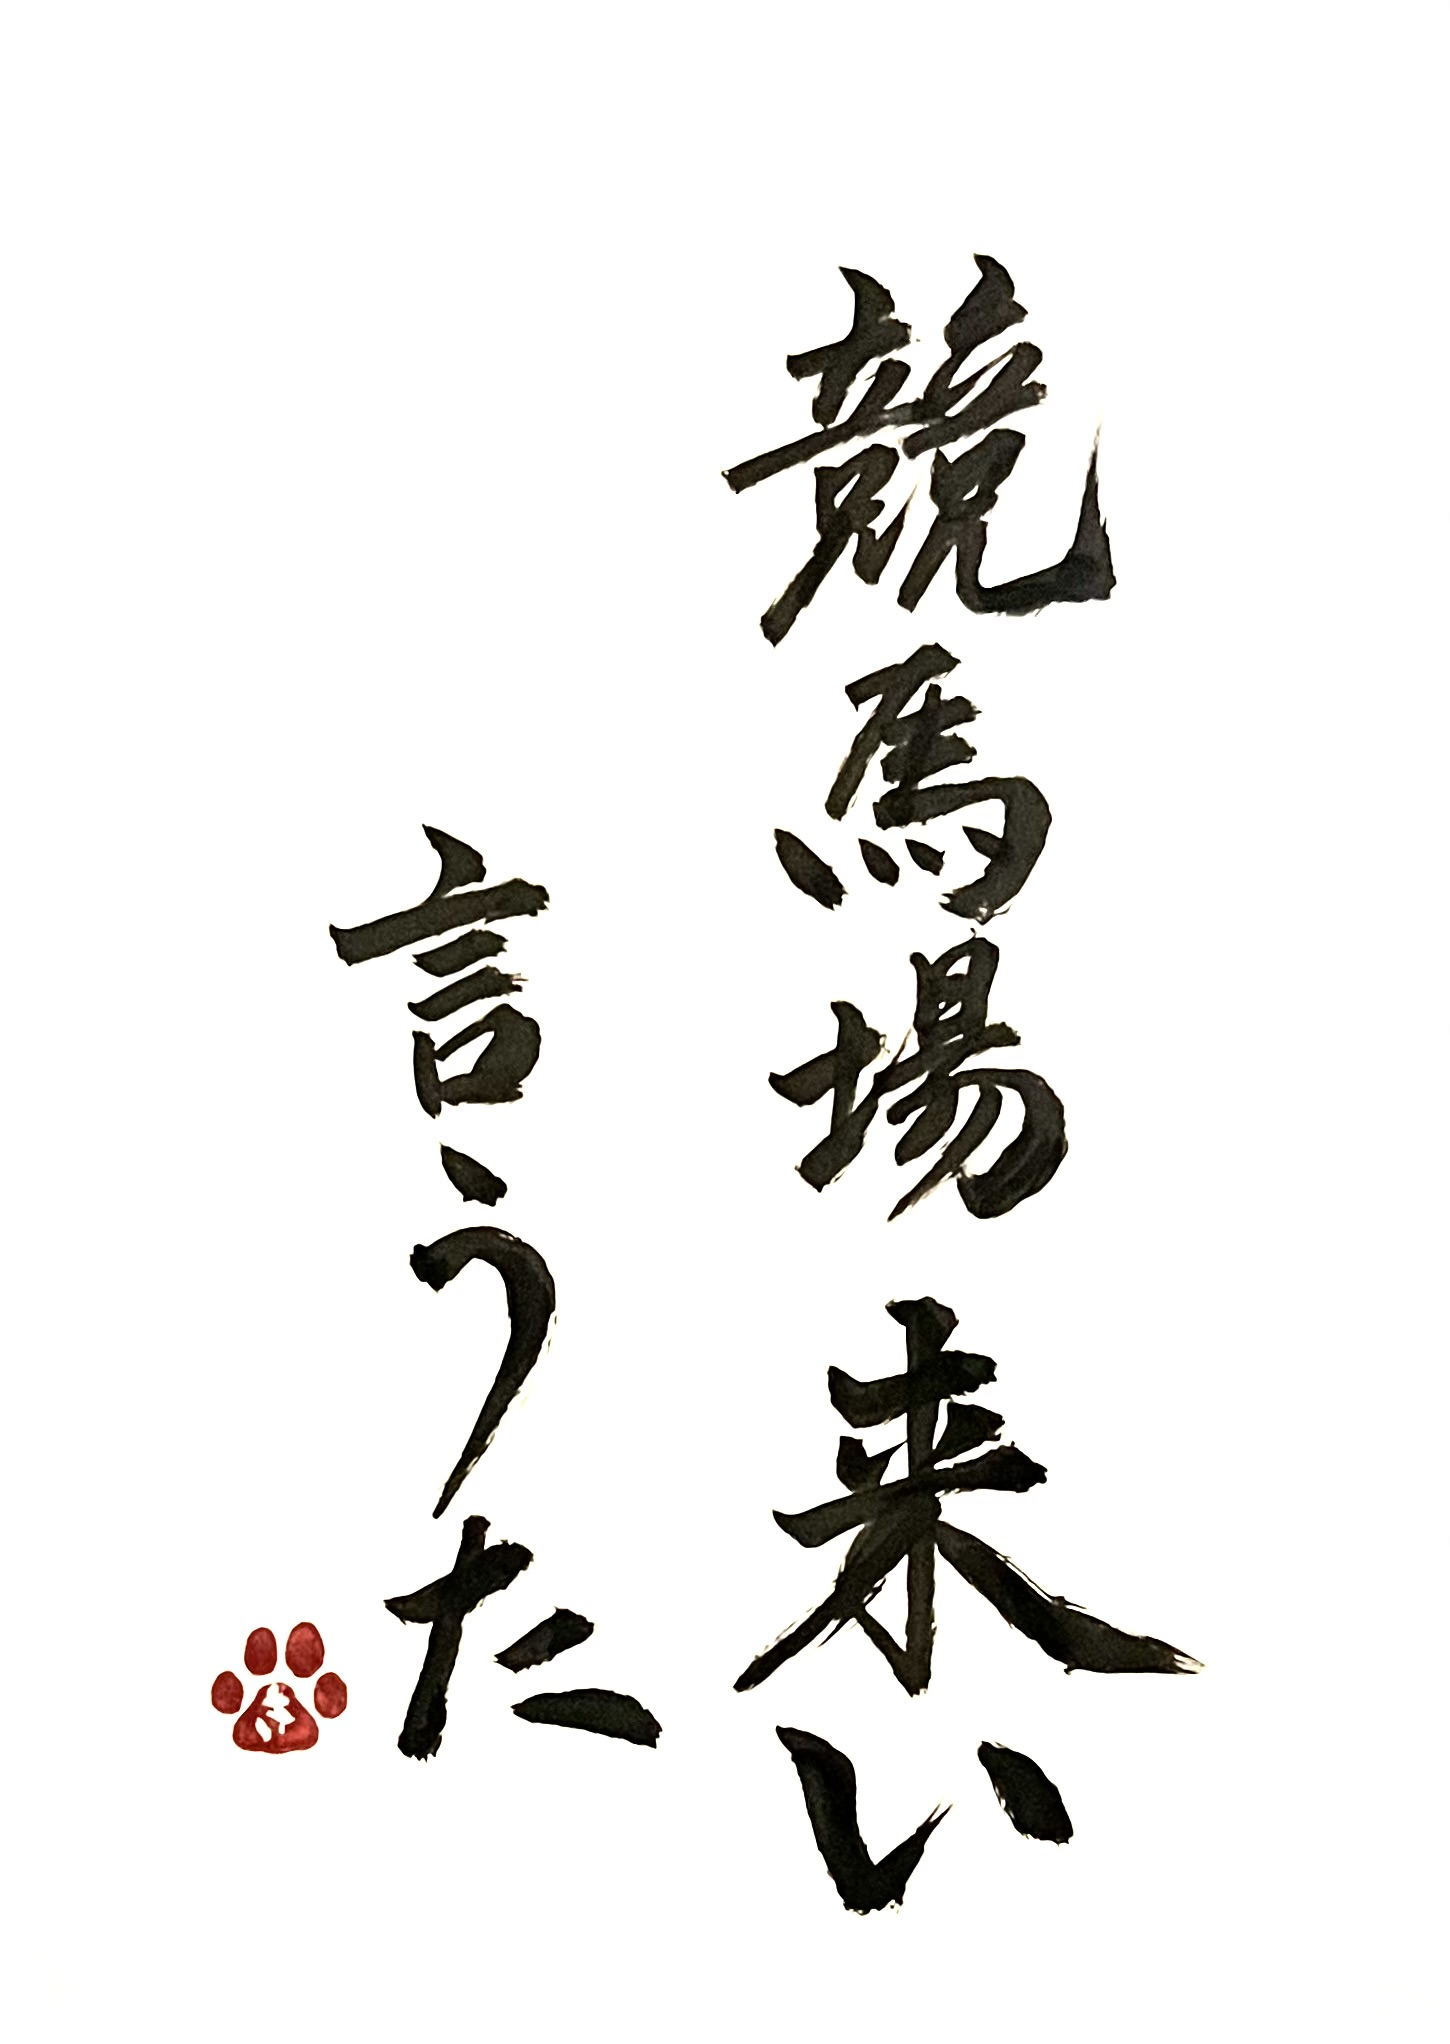 競馬場来い
言うた